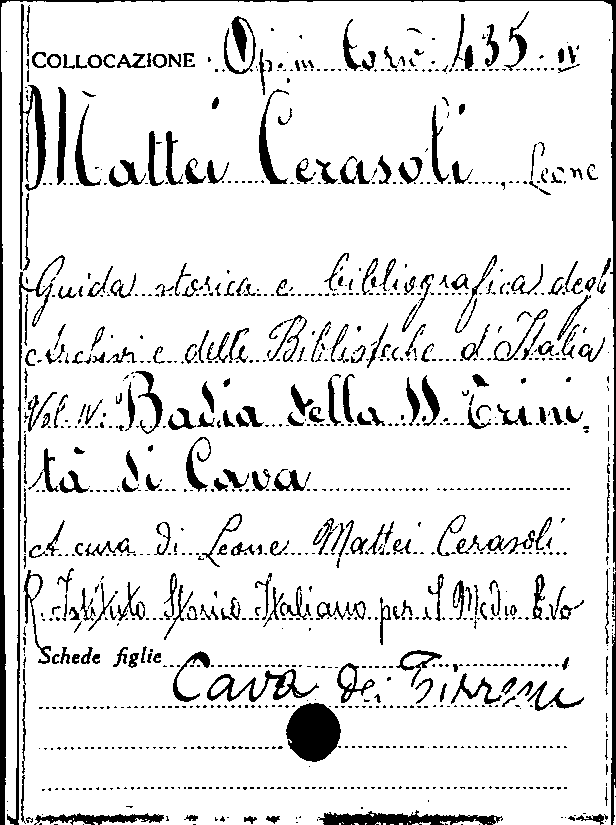 COLLOCAZIONE Op. in Corso: 435. IV
Mattei Cerasoli, Leone
Guida storica e bibliografica degli
Archivi e delle Biblioteche d'Italia
Vol. IV: Badia della SS. Trini-
tà di Cava
A cura di Leone Mattei Cerasoli
R. Istituto Storico Italiano per il Medio Evo
Schede figlie
Cava dei Tirreni